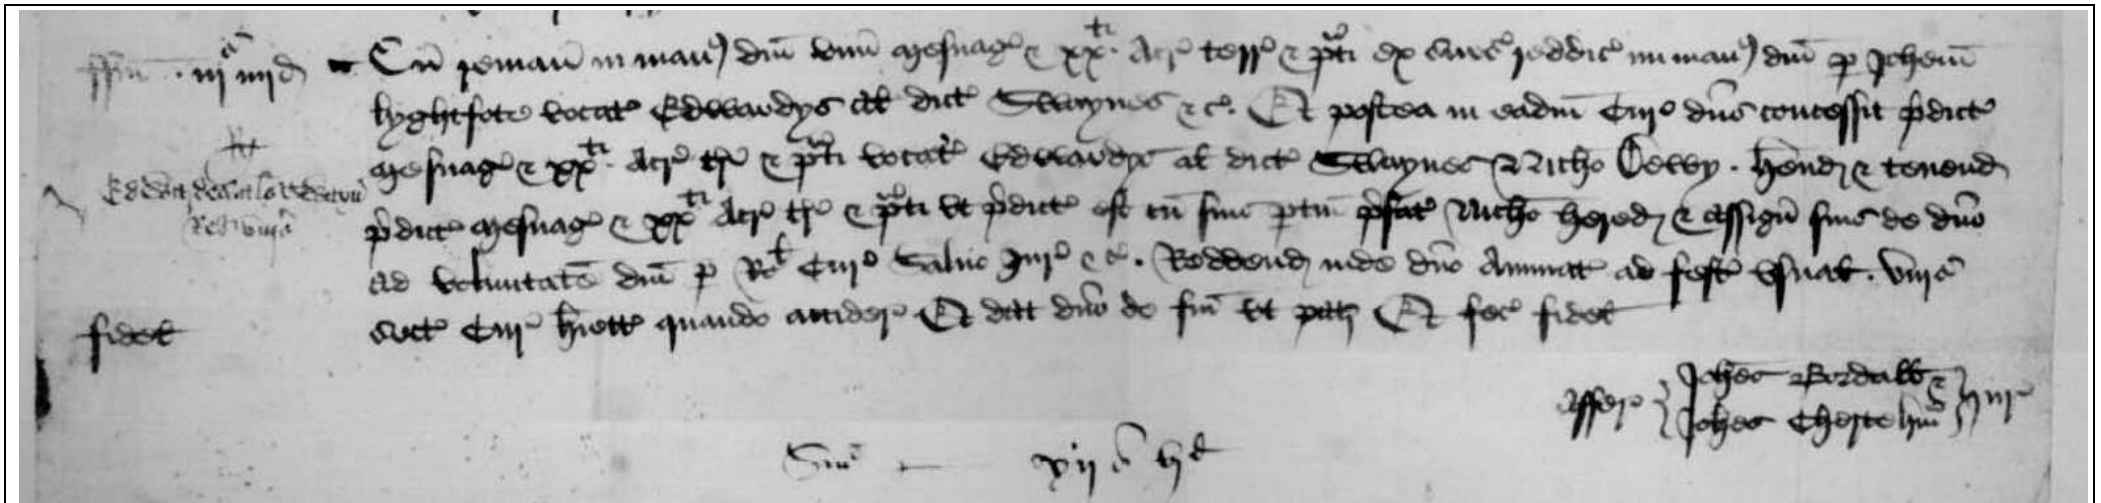 ffin iijs iiijd
Cu reman in man dni unu Mesuag & xxti Acr terr & prati ex surs reddit in man dni p Johem
lyghtfote vocat Edwardys al dict Swaynes &c. Et postea in eadm Cur dns concessit pdict
Mesuag & xxti Acr tr & prati vocat Edwardys al dict Swaynes Nicho Dewy. hend & tenend
Edwardys
Redd viijs
pdict Mesuag & xxti Acr tr & prati ut pdict est cu suis ptin pfat Nicho hered & Assign suis de dno
ad voluntate dni p Rot Cur Salvo Jur &c. Reddend inde dno Annuat ad fest usual. viijs
fidel
sect Cur hiett quando accider Et dat dno de fin ut pat3 Et fec fidel
Affer Johes & Jur
Johes
Sma xijs